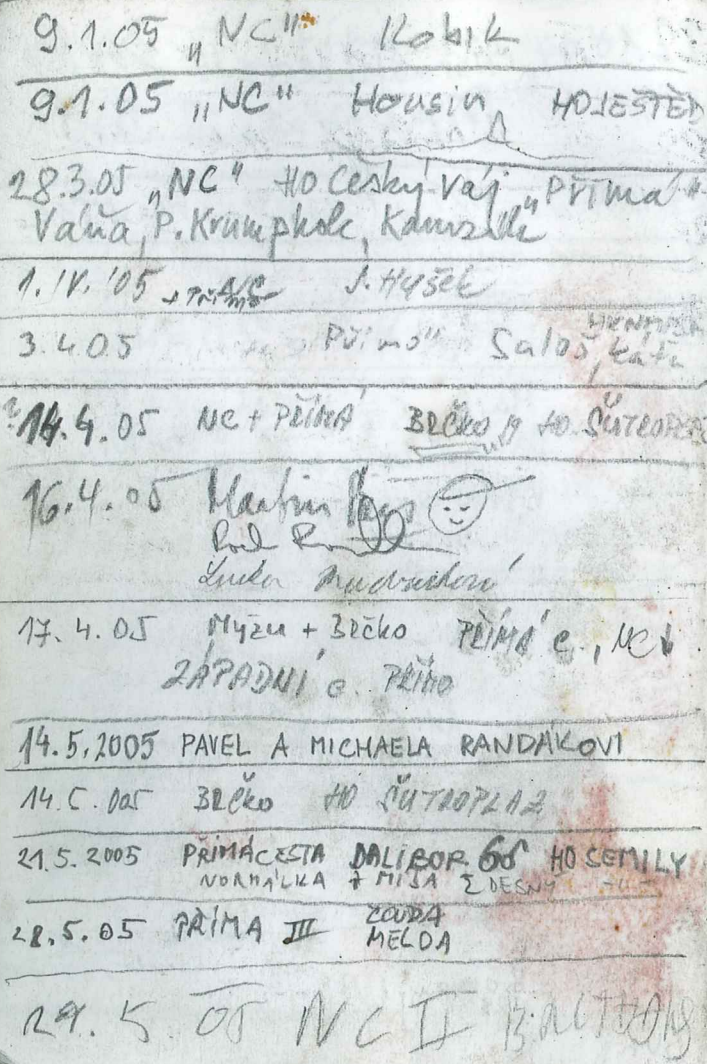 9.1.05 „NC" Kobik
9.1.05 „NC" Housin HO JEŠTĚD
28.3.05 „NC" HO Český ráj „Přímá"
Váňa, P. Krumpholc, Kamzík
1. IV. '05 J. Hyšek
3.4.05 Přímá" Saloš, Káťa
14.4.05 NC + PŘÍMÁ BRČko HO
16.4.05 Martin
17.4.05 Mýzu + BRČko PŘÍMÁ c., NC
ZÁPADNÍ c. PŘÍMO
14.5.2005 PAVEL A MICHAELA RANDÁKOVI
14.5.005 BRČko HO ŠUTROPLAZ
21.5.2005 PŘÍMÁ CESTA DALIBOR HO SEMILY
NORMÁLKA + MÍŠA
28.5.05 PŘÍMÁ III ČOUDA
MELDA
29.5 05 NC II